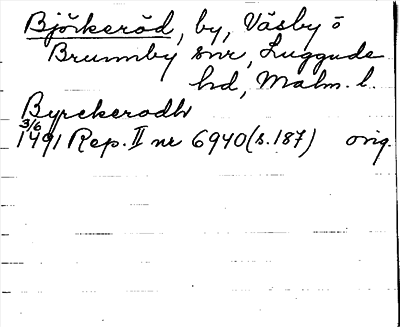 Björkeröd, by, Väsby o
Brunnby snr, Luggude
hd, Malm. l.
Byrckerodh
3/6
1491 Rep. II nr 6940 (s. 187) orig.